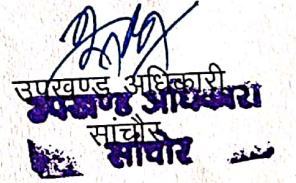 उपखण्ड अधिकारी
उपखण्ड अधिकारी
सांचौर
सांचोर